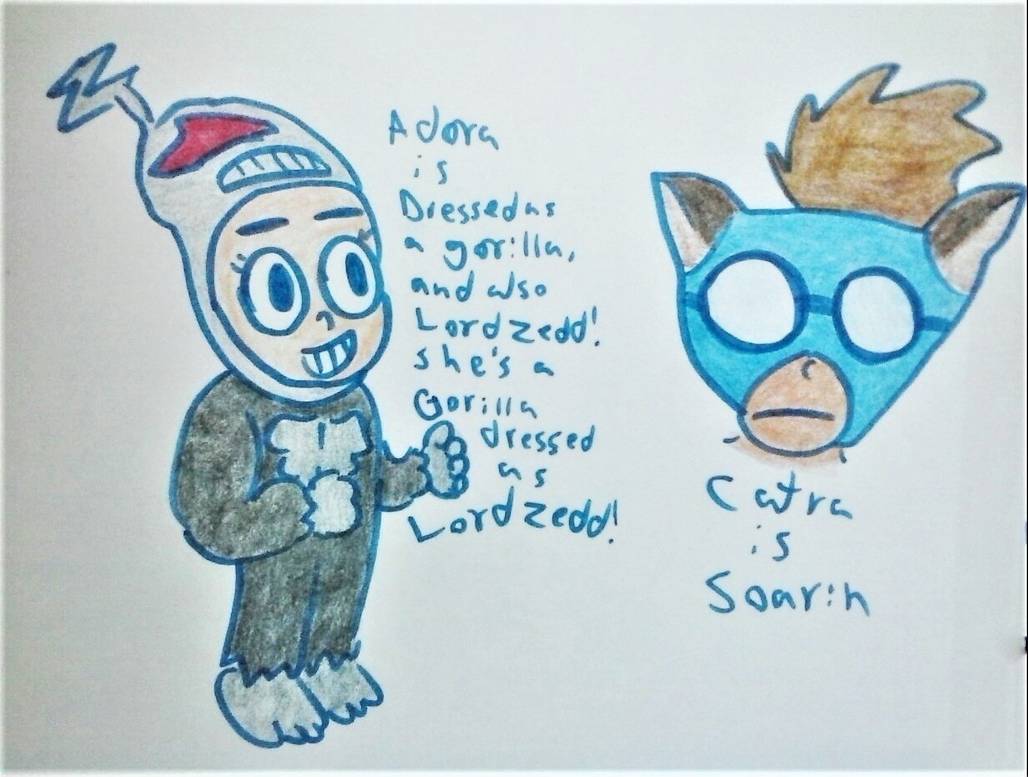 Adora
is
Dressed as
a gorilla,
and also
Lord zedd!
she's a
Gorilla
dressed
as
Lord zedd!
Catra
is
Soarin